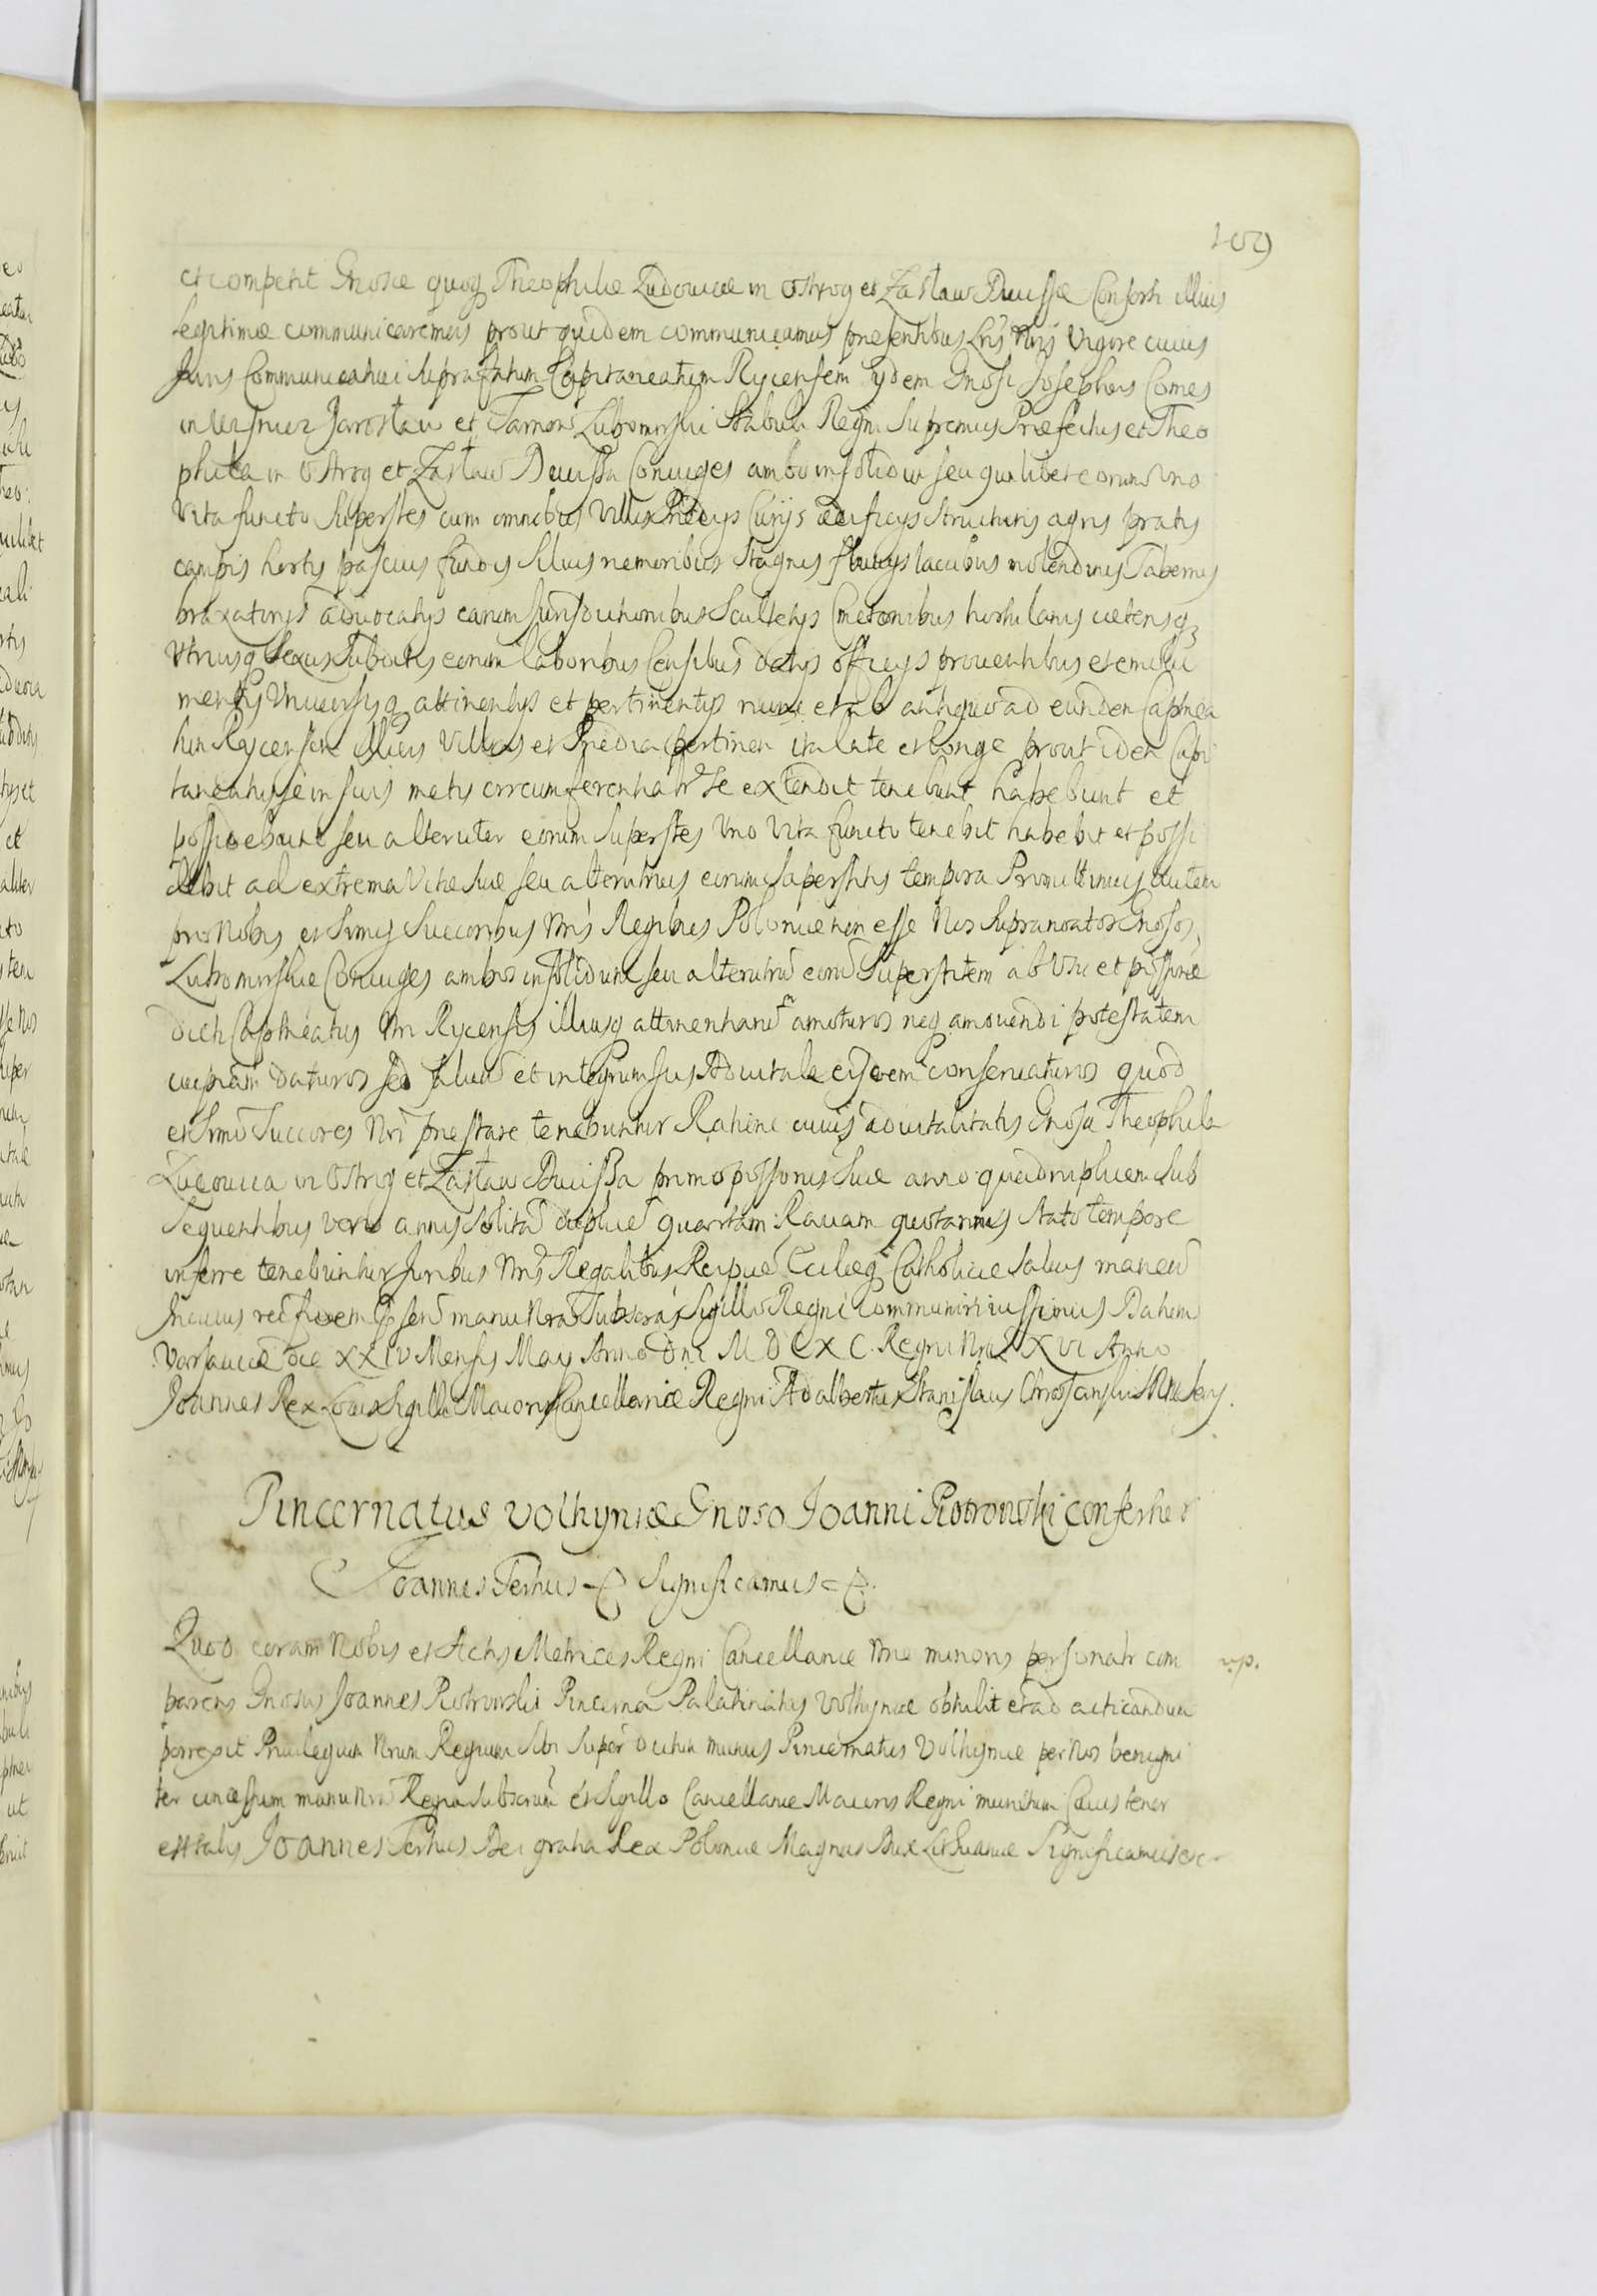 109
et competit Gnosae quoq Theophilae Ludovicae in Ostrog et Zasław Ducissae Consorti illius
legitimae communicaremus prout quidem communicamus praesentibus Lris Nris Vigore cuius
Juris Communicativi Supra fatum Capitaneatum Rycensem ijdem Gnosi Josephus Comes
in Wisnicz Jarosław et Tarnow Lubomirski Stabuli Regni Supremus Praefectus et Theo
phila in Ostrog et Zasław Ducissa Coniuges ambo in solidum seu quilibet eorum uno
Vita functo Superstes cum omnibus Villis Praedijs Curijs aedificijs Structuris agris pratis
campis hortis pascuis fundis Siluis nemoribus Stagnis fluuijs lacubus molendinis Tabernis
braxatorijs aduocatijs earum Jurisdictionibus Scultetijs Cmetonibus hortulanis caeterisq
Vtriusq Sexus Subditis eorum laboribus Censibus datijs officijs prouentibus et emolu
mentis Vniuersisq attinentijs et pertinentijs nunc et ab antiquo ad eundem Captnea
tum Rycensem illius Villas et Praedia pertinen ita late et longe prout idem Capi
taneatus se in suis metis circumferentiatr Se extendit tenebunt habebunt et
possidebunt seu alteruter eorum Superstes Vno Vita functo tenebit habebit et possi
debit ad extrema Vitae Suae seu alterutrius eorum Superstitis tempora Promittimus autem
pro Nobis et Srmis Succoribus Nris Regibus Poloniae non esse Nos Supranoatos Gnosos
Lubomirskie Coniuges ambos in solidum seu alterutrū eorū Superstitem ab Vsu et possne
dicti Captneatus Nri Rycensis illiusq attinentiarū amoturos neq amouendi potestatem
cuipiam daturos sed saluū et integrum Jus Aduitale eisdem conseruaturos quod
et Srmi Succores Nri praestare tenebuntur Ratine cuius aduitalitatis Gnosa Theophila
Ludouica in Ostrog et Zasław Ducissa primo possonis Suae anno quadruplicem Sub
sequentibus vero annis solitā duplicē quartam Rauam quotannis Stato tempore
inferre tenebuntur Juribus Nris Regalibus Reipucae Ecclaeq Catholicae Saluis manen
In cuius rei fidem psen manu Nra Subscrás Sigillo Regni communiri iussimus Datum
Varsauiae die XXIV Mensis Maij Anno Dni MDCXC. Regni Nri XVI Anno
Joannes Rex Locus Sigilli Maioris Cancellariae Regni Adalbertus Stanislaus Chrosanski SRM Serij.
Pincernatus Volhyniae Gnoso Joanni Piotrowski confertur
Joannes Tertius Significamus
Quod coram Nobis et Actis Metrices Regni Cancellariae Nrae minoris personatr com
parens Gnosus Joannes Piotrowski Pincerna Palatinatus Volhyniae obtulit et ad acticandum
porrexit Priuilegium Nrum Regium Sibi Super dictum munus Pincernatus Volhyniae per Nos benigni
ter concessum manu Nra Regia Subscrum et Sigillo Cancellariae Maioris Regni munitum Cuius tenor
est talis Joannes Tertius Dei gratia Rex Poloniae Magnus Dux Lithuaniae Significamus etc